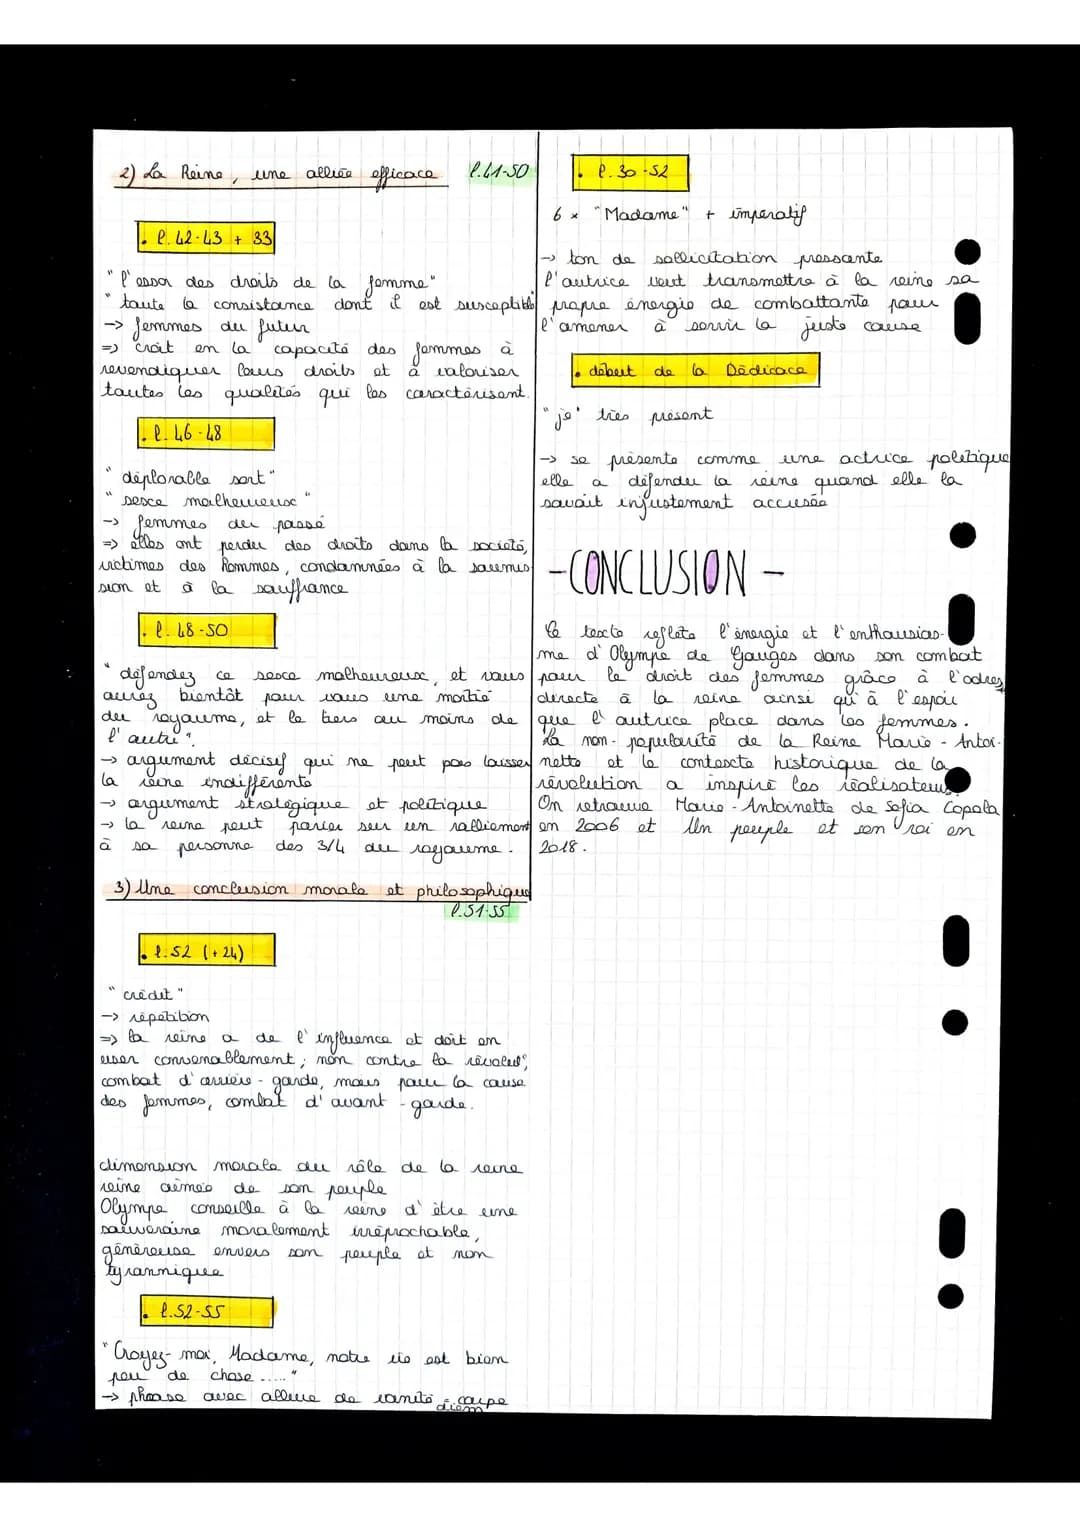 2) La Reine, une alliée efficace l.41-50
. l. 42-43 + 33
"l'essor des droits de la femme"
"toute la consistance dont il est susceptible
-> femmes du futur
=> croit en la capacité des femmes à
revendiquer leurs droits et à valoriser
toutes les qualités qui les caractérisent.
. l. 46-48
"déplorable sort"
"sexe malheureux"
-> femmes du passé
=> elles ont perdu des droits dans la société,
victimes des hommes, condamnées à la soumis-
sion et à la souffrance
. l. 48-50
"défendez ce sexe malheureux, et vous
aurez bientôt pour vous une moitié
du royaume, et le tiers au moins de
l'autre".
-> argument décisif qui ne peut pas laisser
la reine indifférente
-> argument stratégique et politique
-> la reine peut parier sur un ralliement
à sa personne des 3/4 du royaume.
3) Une conclusion morale et philosophique
l.51-55
. l.52 (+24)
"crédit"
-> répétition
=> la reine a de l'influence et doit en
user convenablement ; non contre la révolut°,
combat d'arrière-garde, mais pour la cause
des femmes, combat d'avant-garde.
dimension morale du rôle de la reine
reine aimée de son peuple
Olympe conseille à la reine d'être une
souveraine moralement irréprochable,
généreuse envers son peuple et non
tyrannique
. l.52-55
"Croyez-moi, Madame, notre vie est bien
peu de chose ....."
-> phrase avec allure de vanité = carpe
diem
. l. 30-52
6 x "Madame" + impératif
-> ton de sollicitation pressante
l'autrice veut transmettre à la reine sa
propre énergie de combattante pour
l'amener à servir la juste cause
. début de la Dédicace
"je" très présent
-> se présente comme une actrice politique
elle a défendu la reine quand elle la
savait injustement accusée
-CONCLUSION -
Le texte reflète l'énergie et l'enthousias-
me d'Olympe de Gouges dans son combat
pour le droit des femmes grâce à l'adres
directe à la reine ainsi qu'à l'espoir
que l'autrice place dans les femmes.
La non-popularité de la Reine Marie-Antoi-
nette et le contexte historique de la
révolution a inspiré les réalisateurs
On retrouve Marie-Antoinette de Sofia Copola
en 2006 et Un peuple et son roi en
2018.